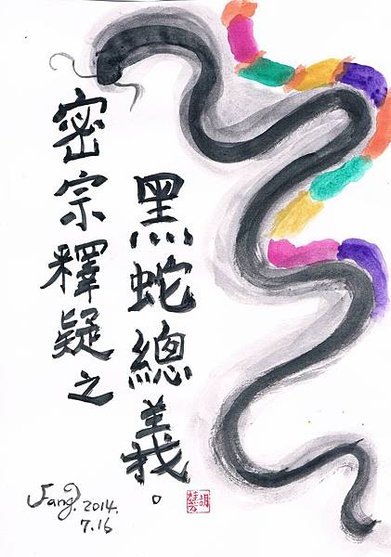 密宗釋疑之
黑蛇總義。
Fang. 2014.
7.16